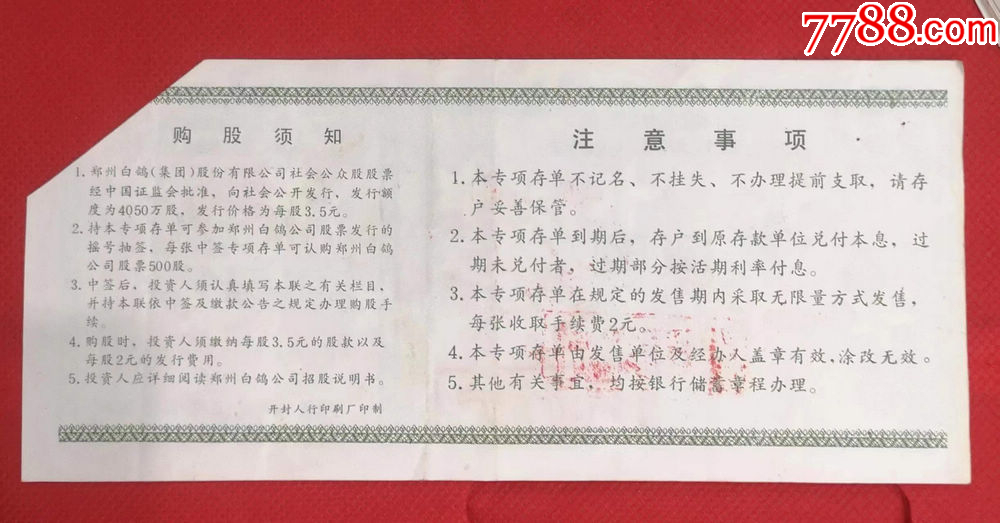 7788.com
购股须知
1.郑州白鸽(集团)股份有限公司社会公众股股票
经中国证监会批准，向社会公开发行，发行额
度为4050万股，发行价格为每股3.5元。
2.持本专项存单可参加郑州白鸽公司股票发行的
摇号抽签，每张中签专项存单可认购郑州白鸽
公司股票500股。
3.中签后，投资人须认真填写本联之有关栏目，
并持本联依中签及缴款公告之规定办理购股手
续。
4.购股时，投资人须缴纳每股3.5元的股款以及
每股2元的发行费用。
5.投资人应详细阅读郑州白鸽公司招股说明书。
开封人行印刷厂印制
注意事项
1.本专项存单不记名、不挂失、不办理提前支取，请存
户妥善保管。
2.本专项存单到期后，存户到原存款单位兑付本息，过
期未兑付者，过期部分按活期利率付息。
3.本专项存单在规定的发售期内采取无限量方式发售，
每张收取手续费2元。
4.本专项存单由发售单位及经办人盖章有效，涂改无效。
5.其他有关事宜，均按银行储蓄章程办理。